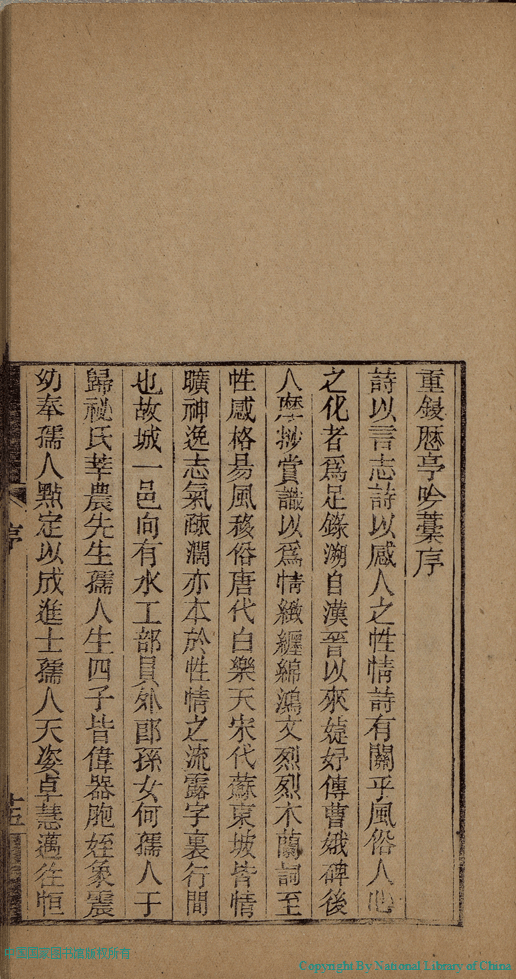 重鋟厯亭吟藁序
詩以言志詩以感人之性情詩有關乎風俗人心
之化者爲足錄溯自漢晉以來婕妤傳曹娥碑後
人摩挱賞識以爲情緻纒綿鴻文烈烈木蘭詞至
性感格易風移俗唐代白樂天宋代蘇東坡皆情
曠神逸志氣疎濶亦本於性情之流露字裏行間
也故城一邑向有水工部員外郎孫女何孺人于
歸祕氏莘農先生孺人生四子皆偉器胞姪象震
幼奉孺人點定以成進士孺人天姿卓慧邁往恒
序
十五
中國國家圖書館版权所有
Copyright By National Library of China